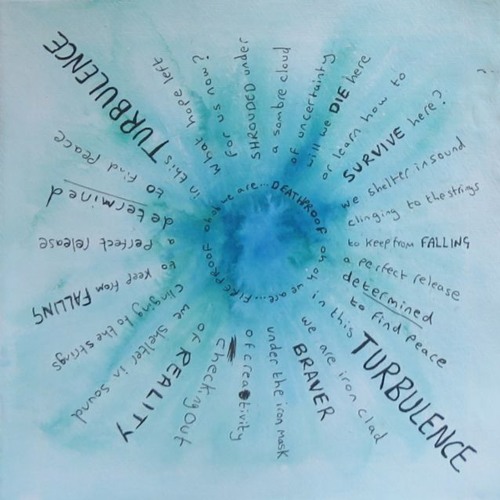 what hope left
for us now?
SHROUDED under
a sombre cloud
of uncertainty
will we DIE here
or learn how to
SURVIVE here?
we shelter in sound
clinging to the strings
to keep from FALLING
a perfect release
determined
to find peace
in this TURBULENCE
we are iron clad
BRAVER
under the iron mask
of creativity
checking out
of REALITY
we shelter in sound
clinging to the strings
to keep from FALLING
a perfect release
determined
to find peace
in this TURBULENCE
oh oh we are... DEATHPROOF
oh oh we are... FIREPROOF